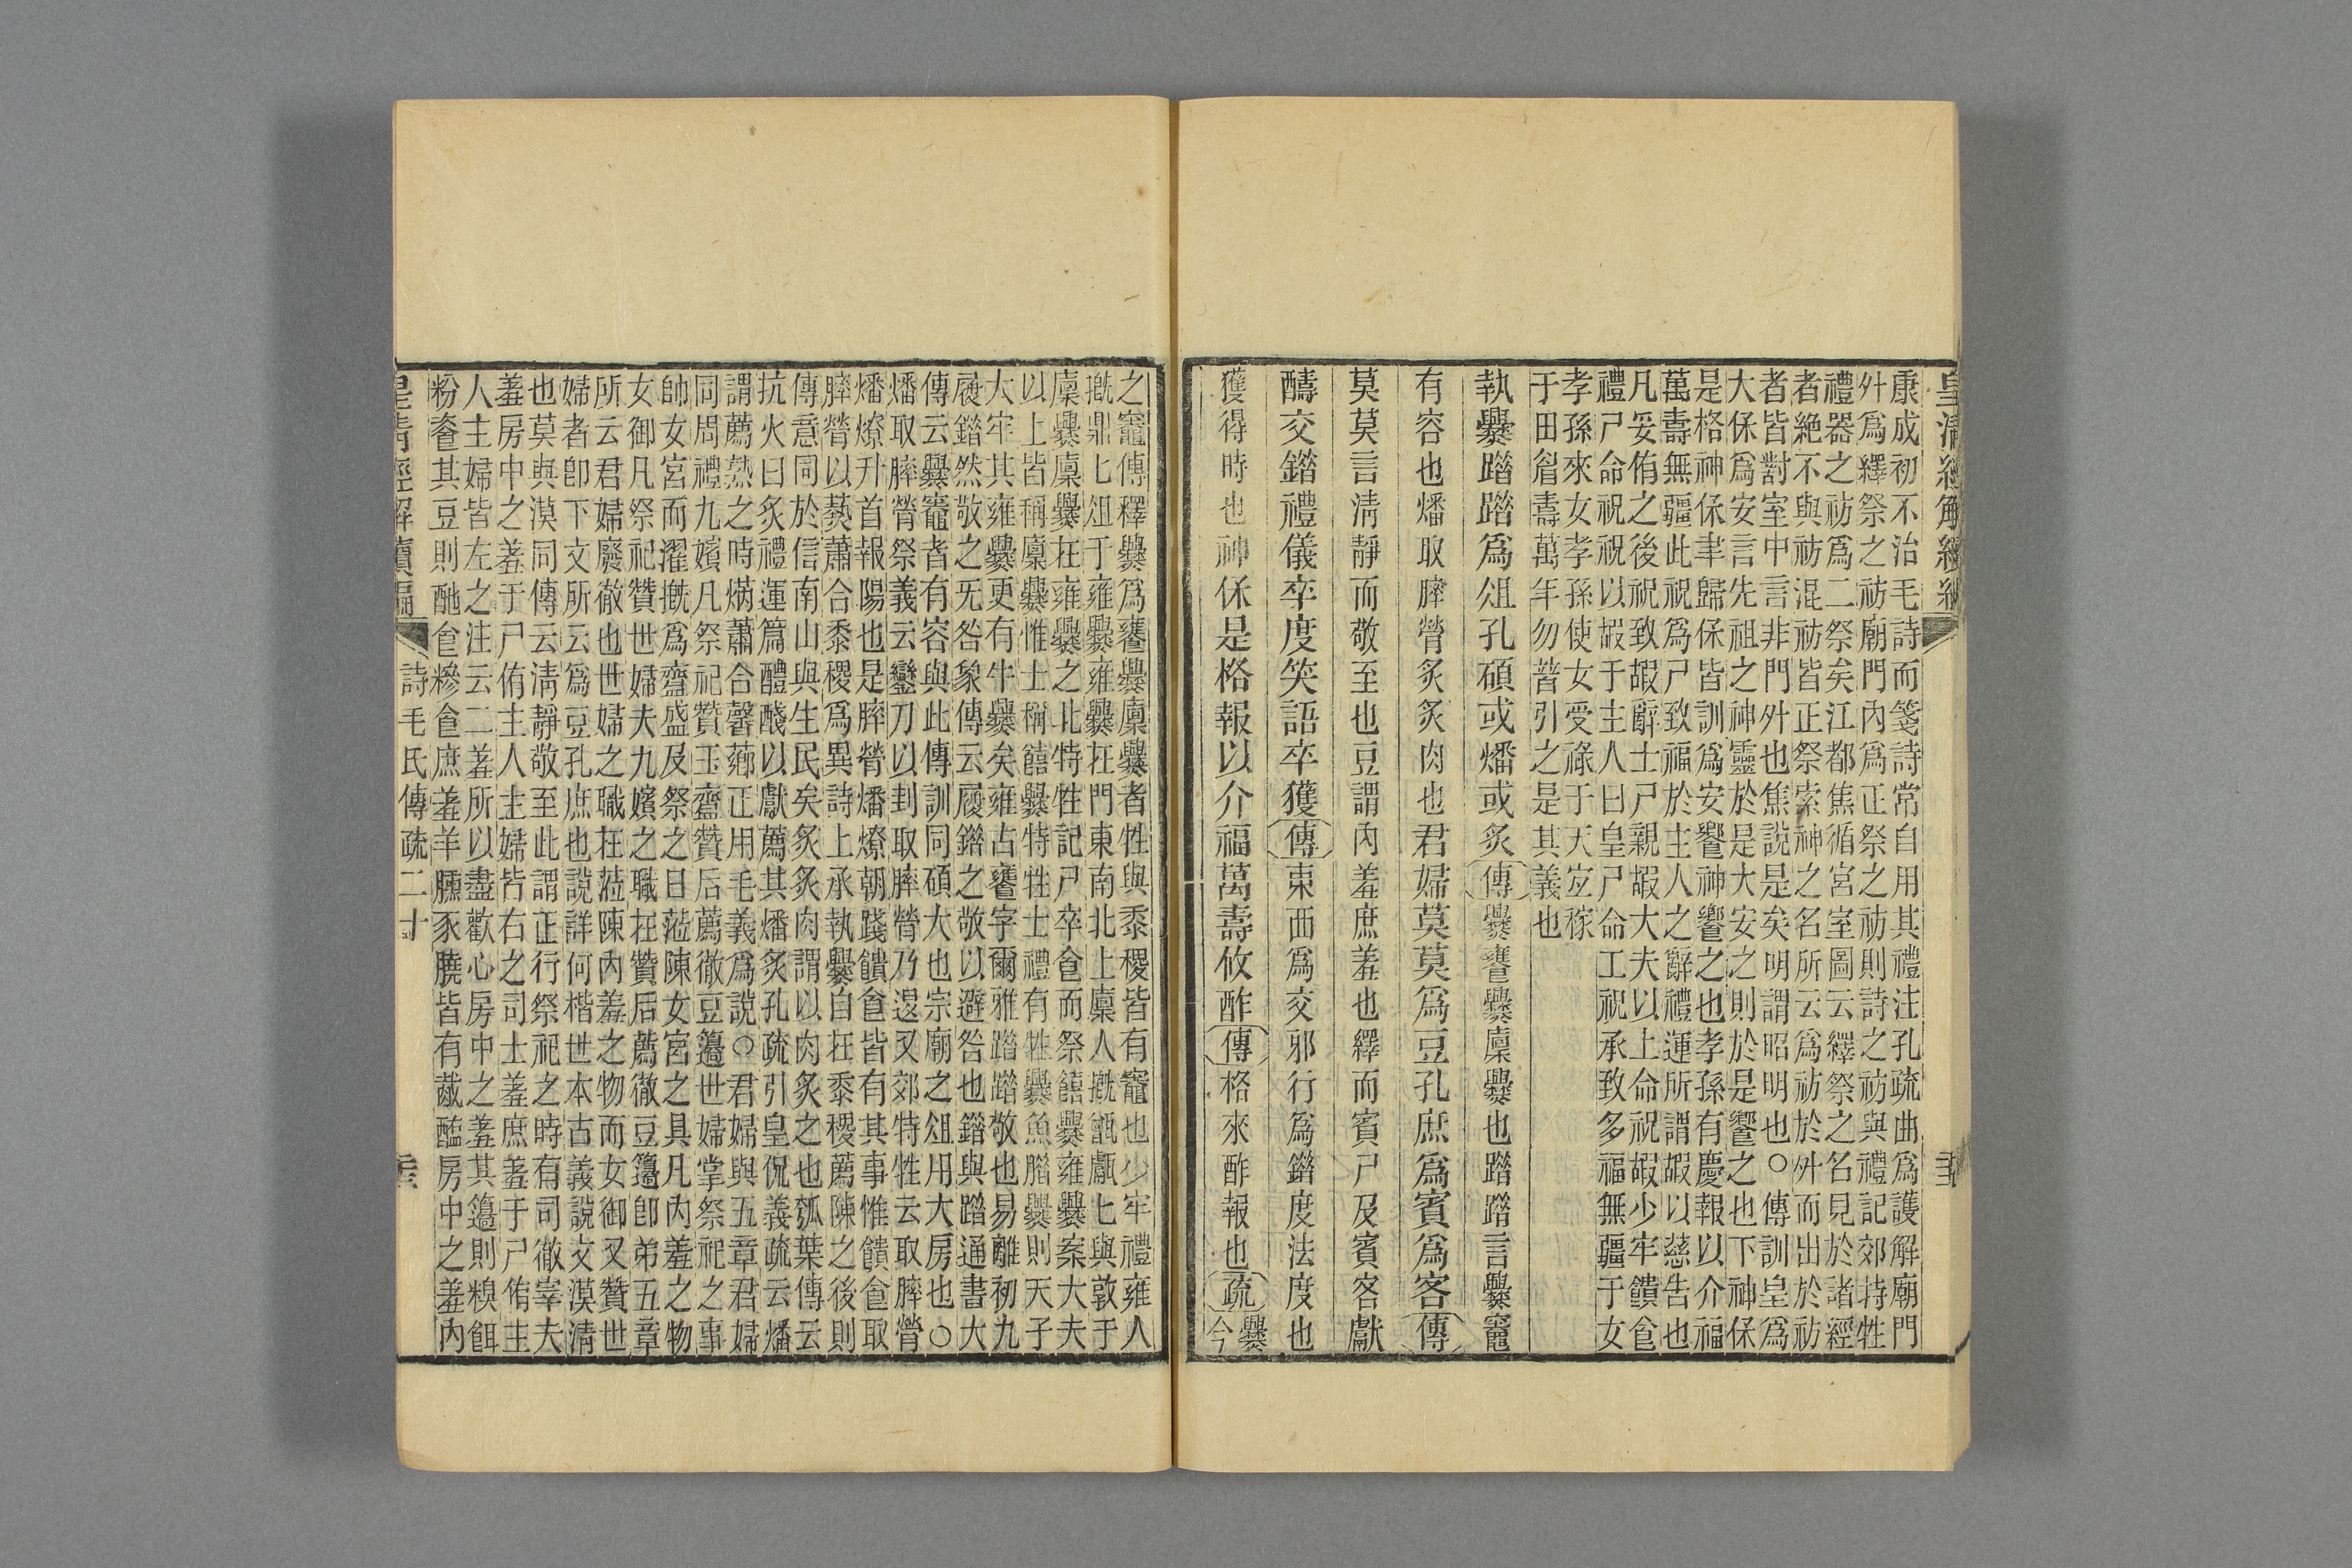 康成初不治毛詩而箋詩常自用其禮注孔疏曲爲護解廟門
外爲繹祭之祊廟門內爲正祭之祊則詩之祊與禮記郊特牲
禮器之祊爲二祭矣江都焦循宮室圖云繹祭之名見於諸經
者絶不與祊混祊皆正祭索神之名所云爲祊於外而出於祊
者皆對室中言非門外也焦說是矣明謂昭明也○傳訓皇爲
大保爲安言先祖之神靈於是大安之則於是饗之也下神保
是格神保聿歸保皆訓爲安饗神饗之也孝孫有慶報以介福
萬壽無疆此祝爲尸致福於主人之辭禮運所謂嘏以慈告也
凡妥侑之後祝致嘏辭士尸親嘏大夫以上命祝嘏少牢饋食
禮尸命祝祝以嘏于主人曰皇尸命工祝承致多福無疆于女
孝孫來女孝孫使女受祿于天宜稼
于田眉壽萬年勿替引之是其義也
執爨踖踖爲俎孔碩或燔或炙傳爨饔爨廩爨也踖踖言爨竈
有容也燔取膟膋炙炙肉也君婦莫莫爲豆孔庶爲賓爲客傳
莫莫言淸靜而敬至也豆謂內羞庶羞也繹而賓尸及賓客獻
醻交錯禮儀卒度笑語卒獲傳東西爲交邪行爲錯度法度也
獲得時也神保是格報以介福萬壽攸酢傳格來酢報也疏爨
今
之竈傳釋爨爲饔爨廩爨者牲與黍稷皆有竈也少牢禮雍人
摡鼎匕俎于雍爨雍爨在門東南北上廩人摡甑甗匕與敦于
廩爨廩爨在雍爨之北特牲記尸卒食而祭饎爨雍爨案大夫
以上皆稱廩爨惟士稱饎爨特牲士禮有牲爨魚腊爨則天子
大牢其雍爨更有牛爨矣雍古饔字爾雅踖踖敬也易離初九
履錯然敬之无咎象傳云履錯之敬以避咎也錯與踖通書大
傳云爨竈者有容與此傳訓同碩大也宗廟之俎用大房也○
燔取膟膋祭義云鑾刀以刲取膟膋乃退又郊特牲云取膟膋
燔燎升首報陽也是膟膋燔燎朝踐饋食皆有其事惟饋食取
膟膋以爇蕭合黍稷爲異詩上承執爨自在黍稷薦陳之後則
傳意同於信南山與生民矣炙炙肉謂以肉炙之也瓠葉傳云
抗火曰炙禮運篇醴醆以獻薦其燔炙孔疏引皇侃義疏云燔
謂薦熟之時焫蕭合馨薌正用毛義爲說○君婦與五章君婦
同周禮九嬪凡祭祀贊玉齍贊后薦徹豆籩世婦掌祭祀之事
帥女宮而濯摡爲齍盛及祭之日涖陳女宮之具凡內羞之物
女御凡祭祀贊世婦夫九嬪之職在贊后薦徹豆籩卽弟五章
所云君婦廢徹也世婦之職在涖陳內羞之物而女御又贊世
婦者卽下文所云爲豆孔庶也說詳何楷世本古義說交漠淸
也莫與漠同傳云淸靜敬至此謂正行祭祀之時有司徹宰夫
羞房中之羞于尸侑主人主婦皆右之司士羞庶羞于尸侑主
人主婦皆左之注云二羞所以盡歡心房中之羞其籩則糗餌
粉餈其豆則酏食糝食庶羞羊臐豕膮皆有胾醢房中之羞內
詩毛氏傳疏二十